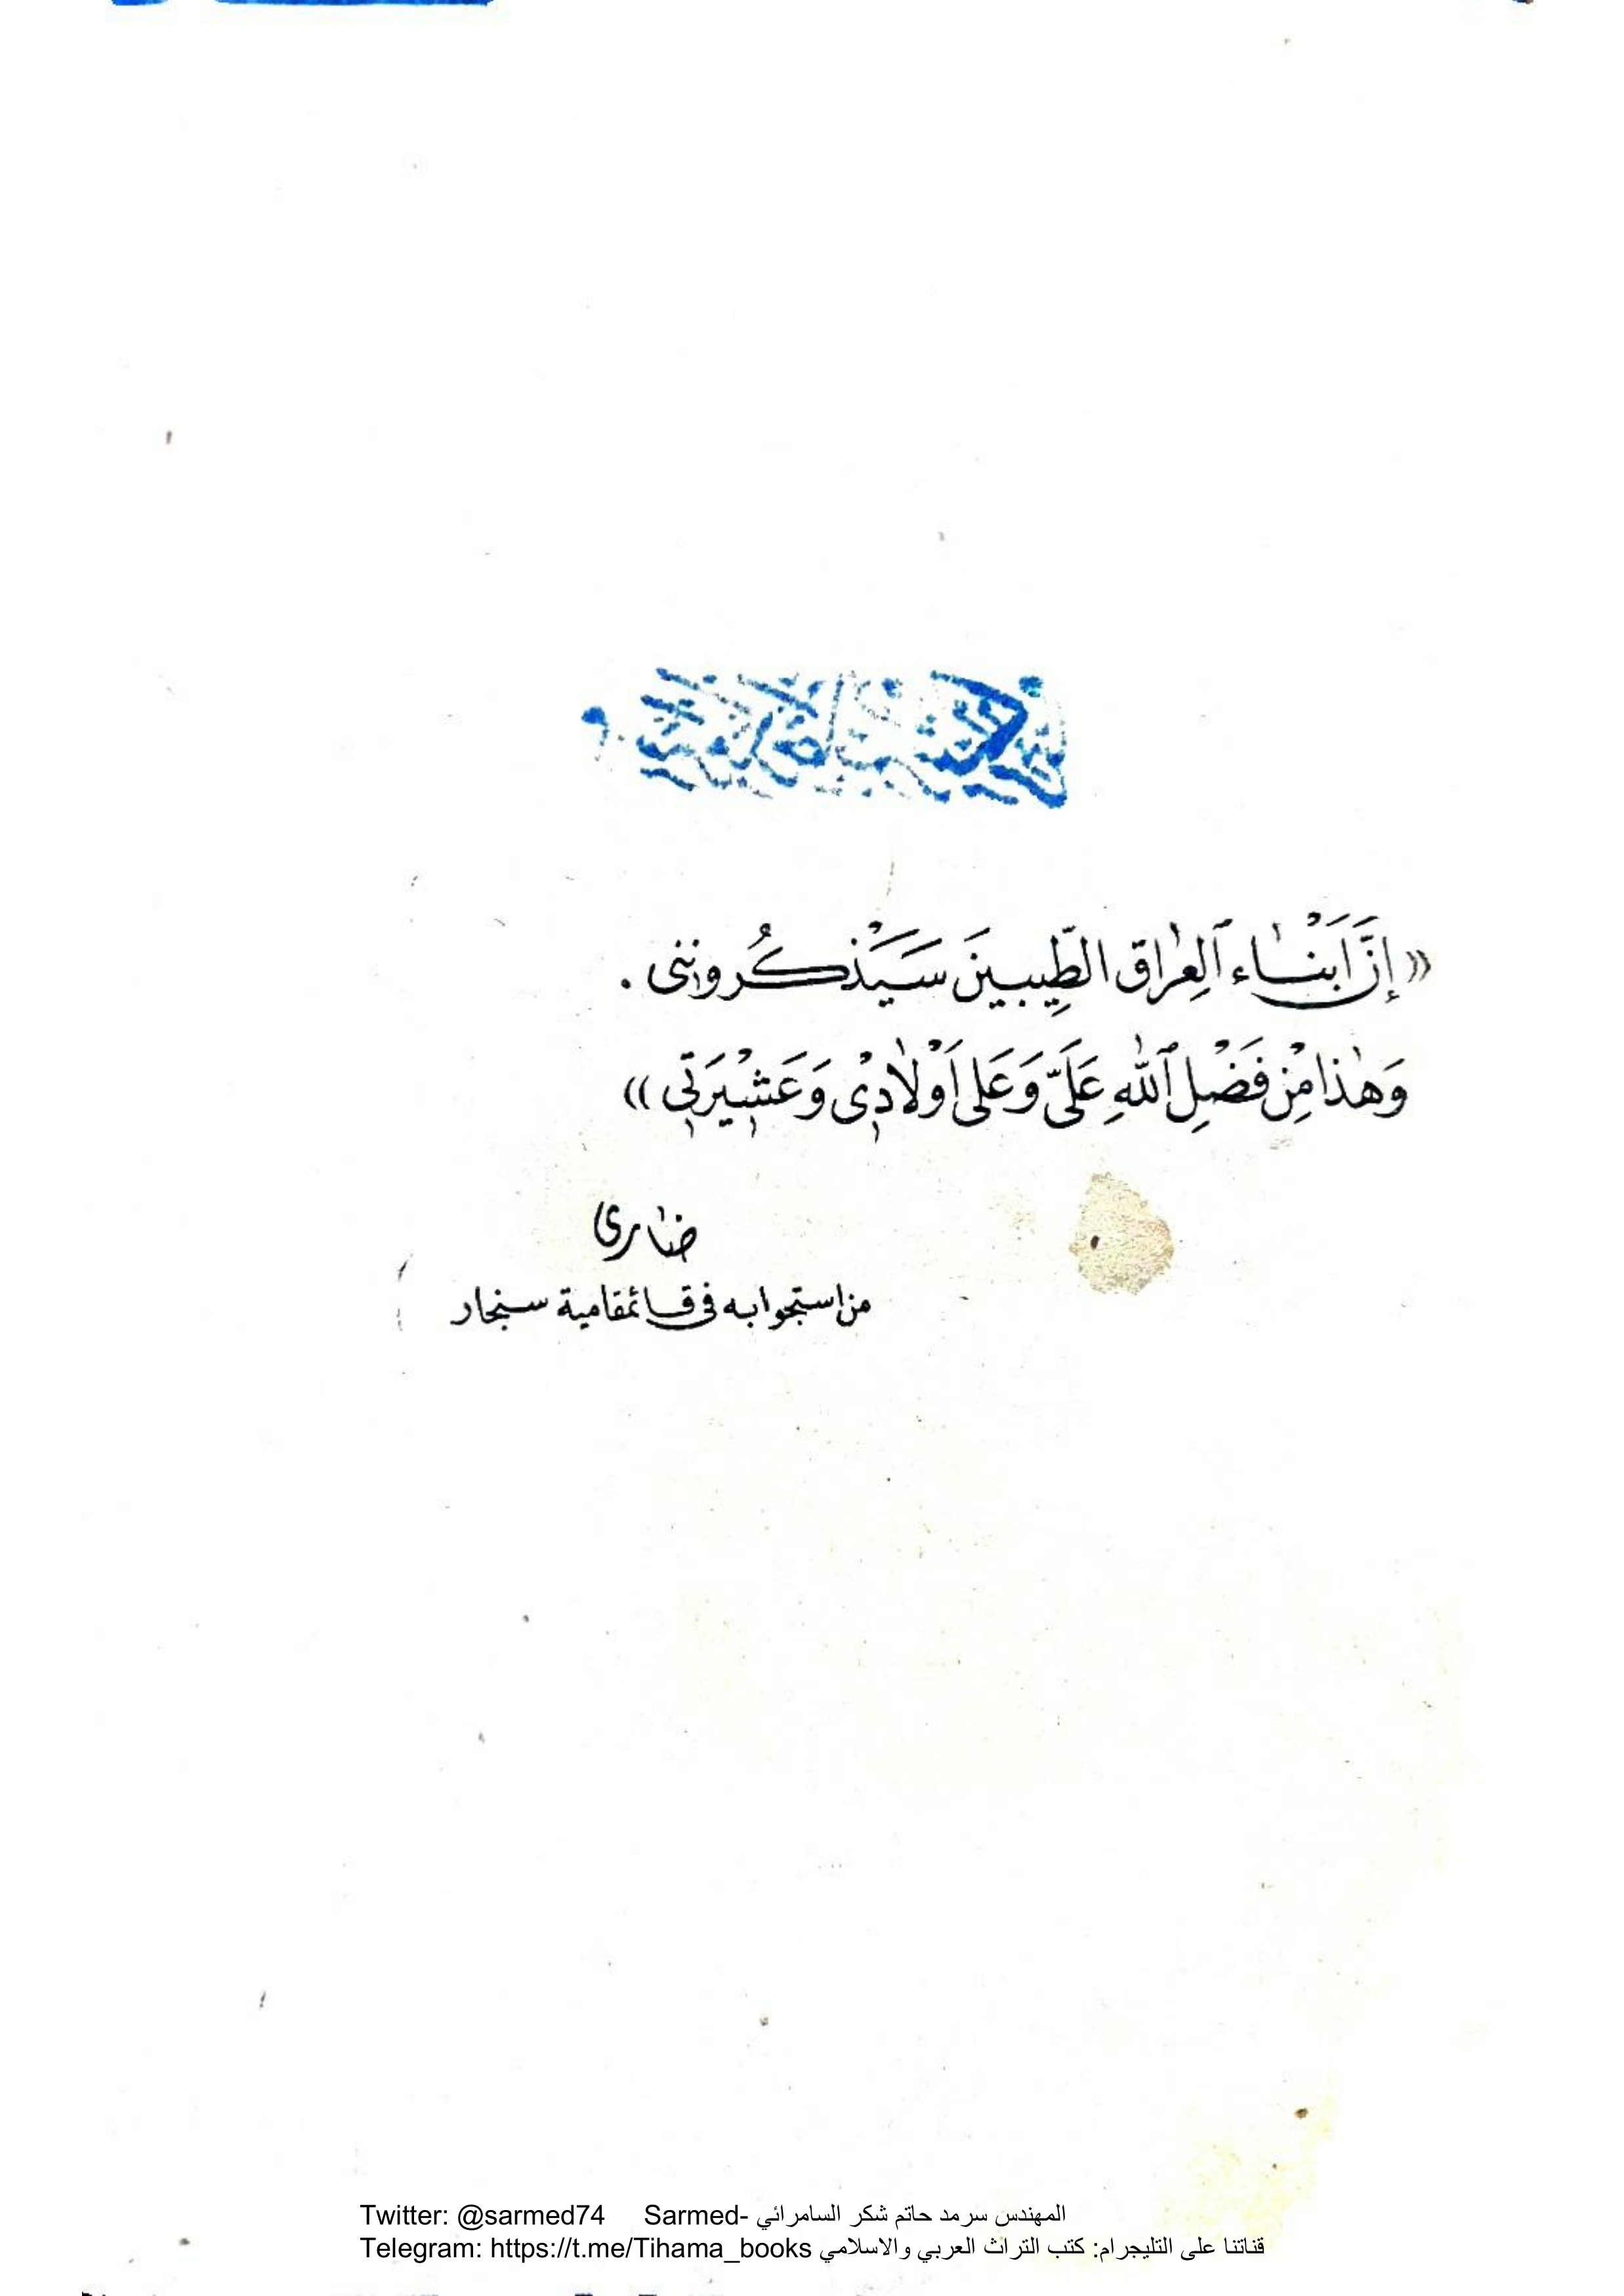 « إِنَّ اَبْنَاء ٱلعِراق الطِّيبينَ سَيَذْكُروننى .
وَهٰذا مِنْ فَضْلِ ٱللهِ عَلَىَّ وَعَلى اَوْلادِىْ وَعَشْيرَتِى »
ضارى
من استجوابه فى قائمقامية سنجار
Twitter: @sarmed74 Sarmed- المهندس سرمد حاتم شكر السامرائي
Telegram: https://t.me/Tihama_books قناتنا على التليجرام: كتب التراث العربي والاسلامي